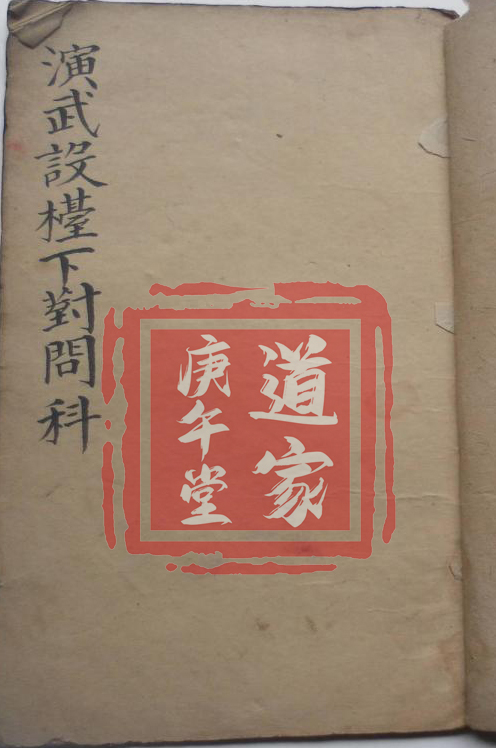 演武設檯下對問科
道家
庚午堂